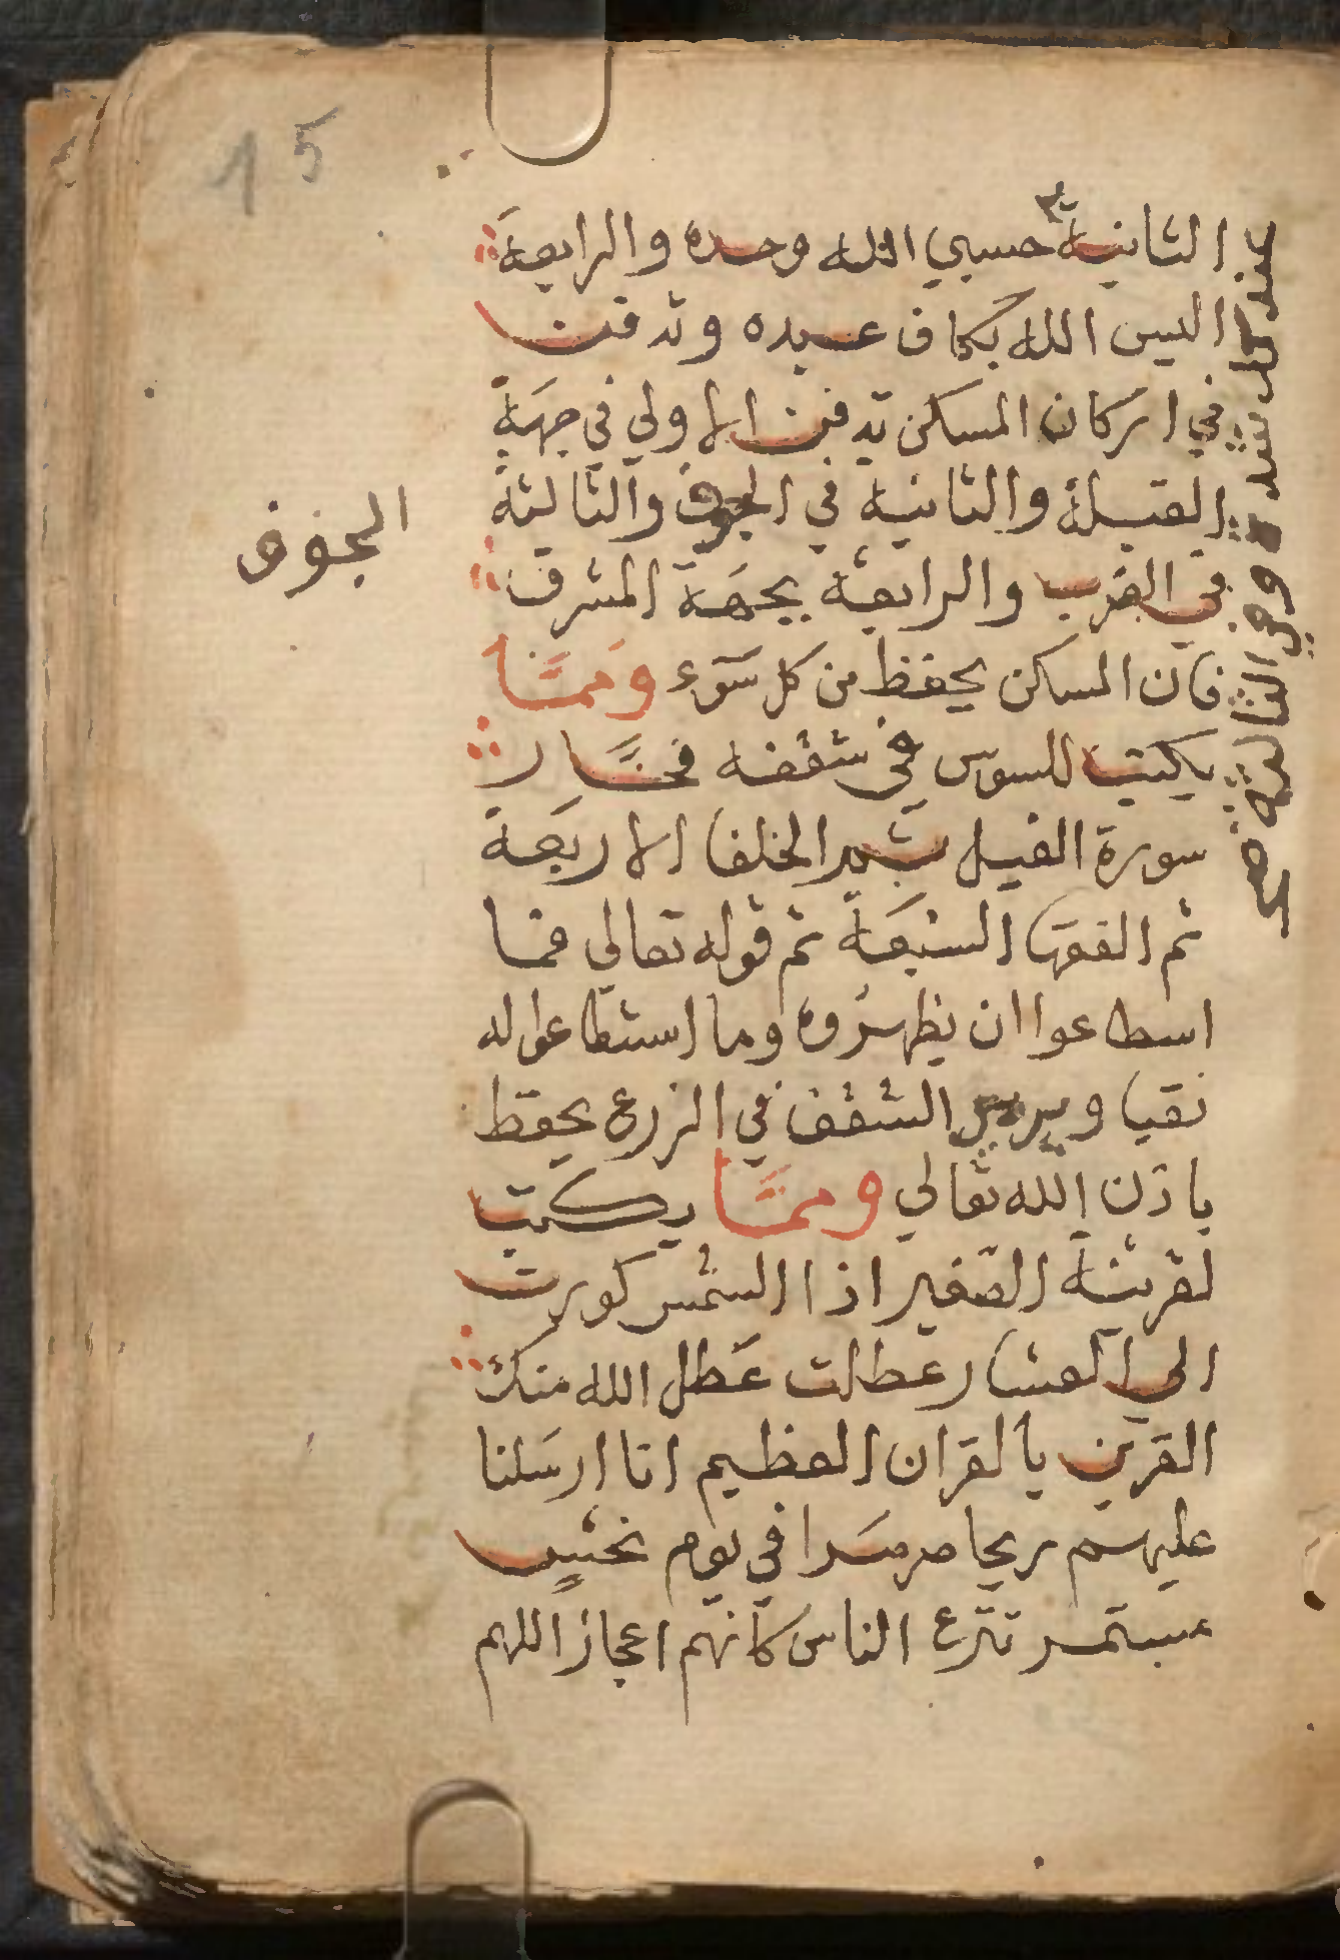 15
الثانية حسبي الله وحده والرابعة
اليس الله بكاف عبده وتدفن
في اركان المسكن تدفن الاولي في جهة
القبلة والثانية في الجوف والثالثة
في الغرب والرابعة بجهة المشرق
فان المسكن يحفظ من كل سوء ومما
يكتب للسوس في شقفه فخار
سورة الفيل ثم الخلفا الاربعة
ثم الفقها السبعة ثم قوله تعالي فما
اسطاعوا ان يظهروه وما استطاعوا له
نقبا و الشقف في الزرع يحفظ
باذن الله تعالي ومما يكتب
لقرينة الصغير اذا الشمس كورت
الى العشار عطلت عطل الله منك
القرين بالقران العظيم انا ارسلنا
عليهم ريحا صرصرا في يوم نحس
مستمر تنزع الناس كانهم اعجاز اللهم
الجوف
عند كل وفي الثالثة صح